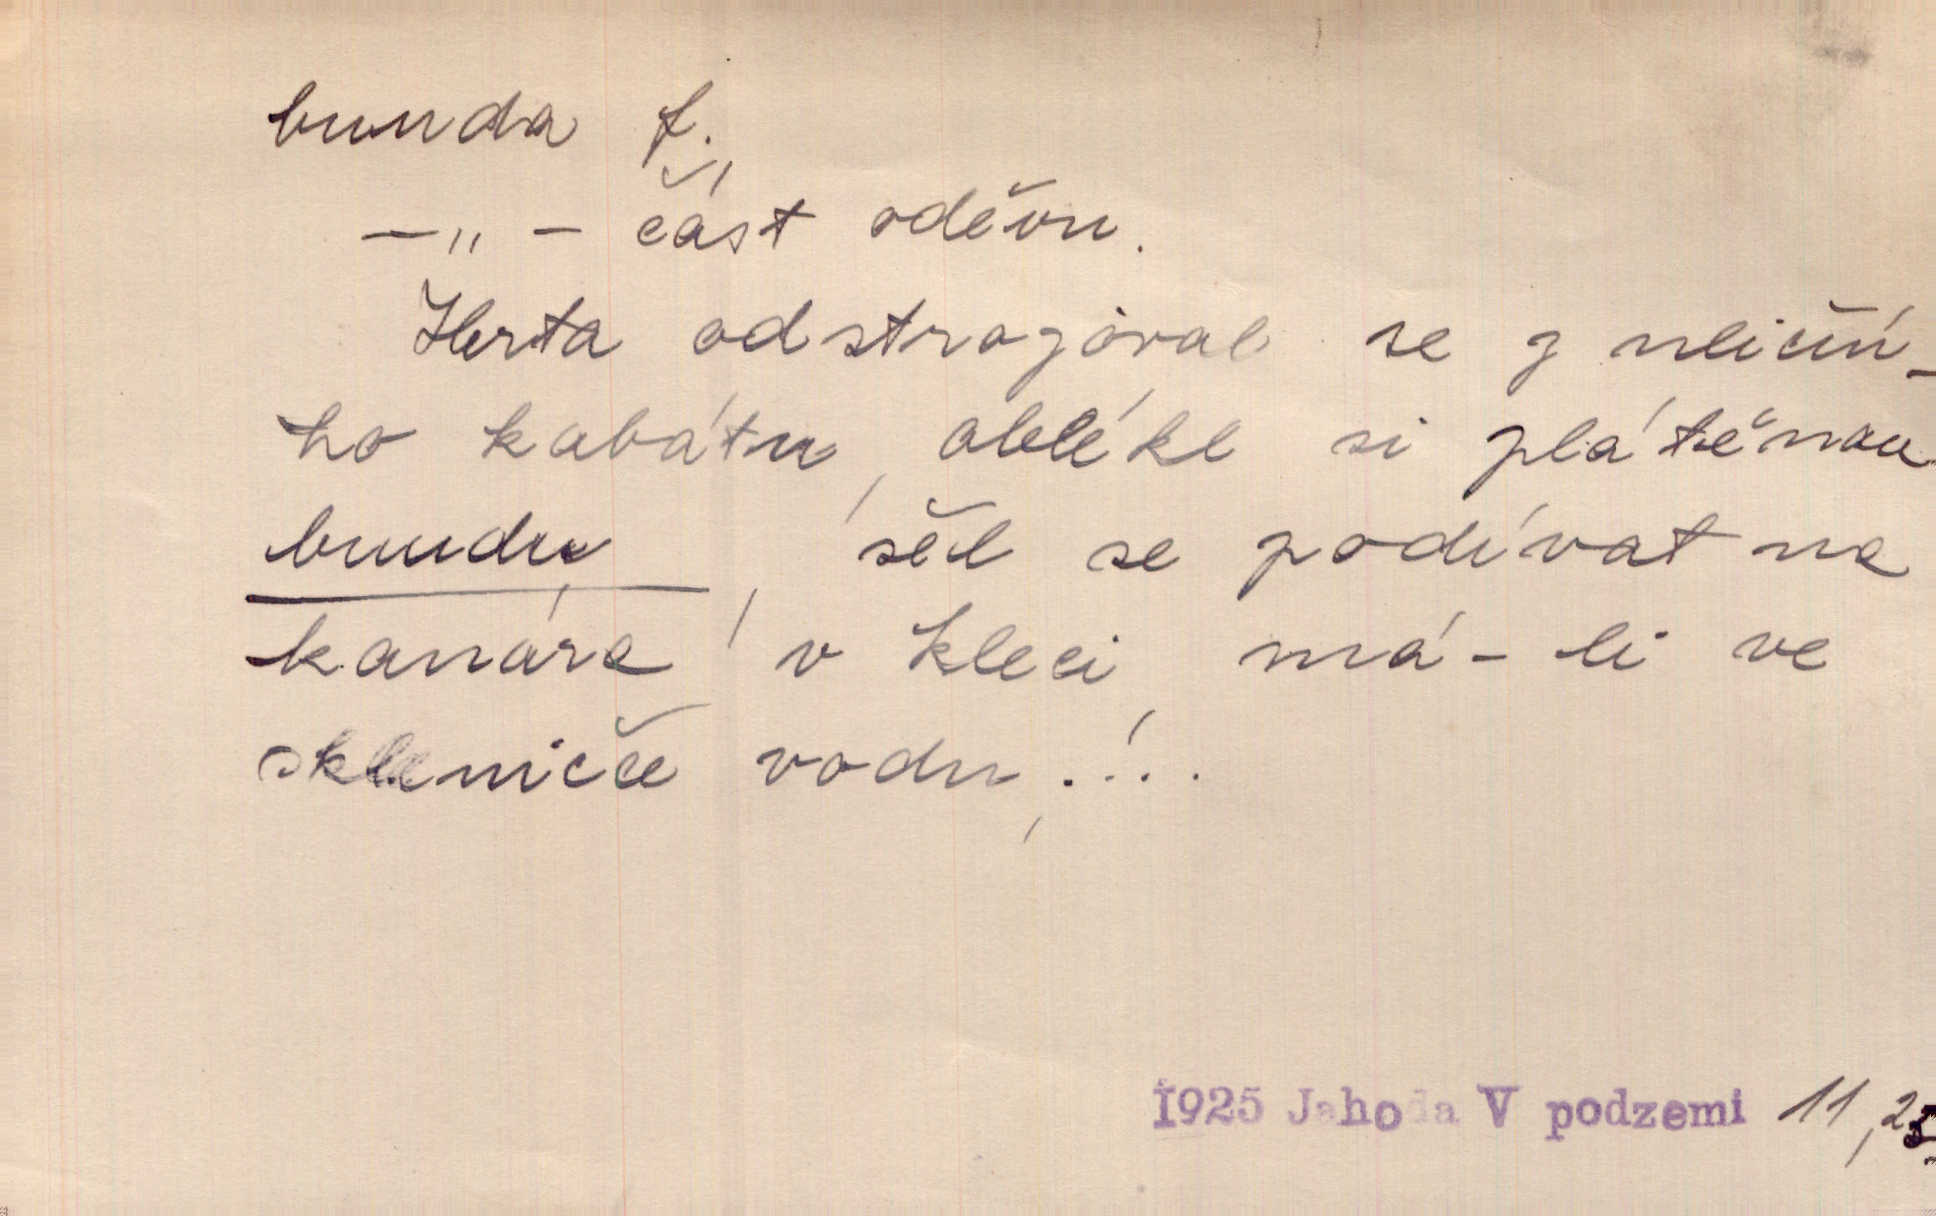 bunda f.
—„— část oděvu.
Herta odstrojoval se z uliční-
ho kabátu, oblékl si plátěnou
bundu, šel se podívat na
kanára v kleci má-li ve
skleničce vodu, ...
1925 Jahoda V podzemi 11,